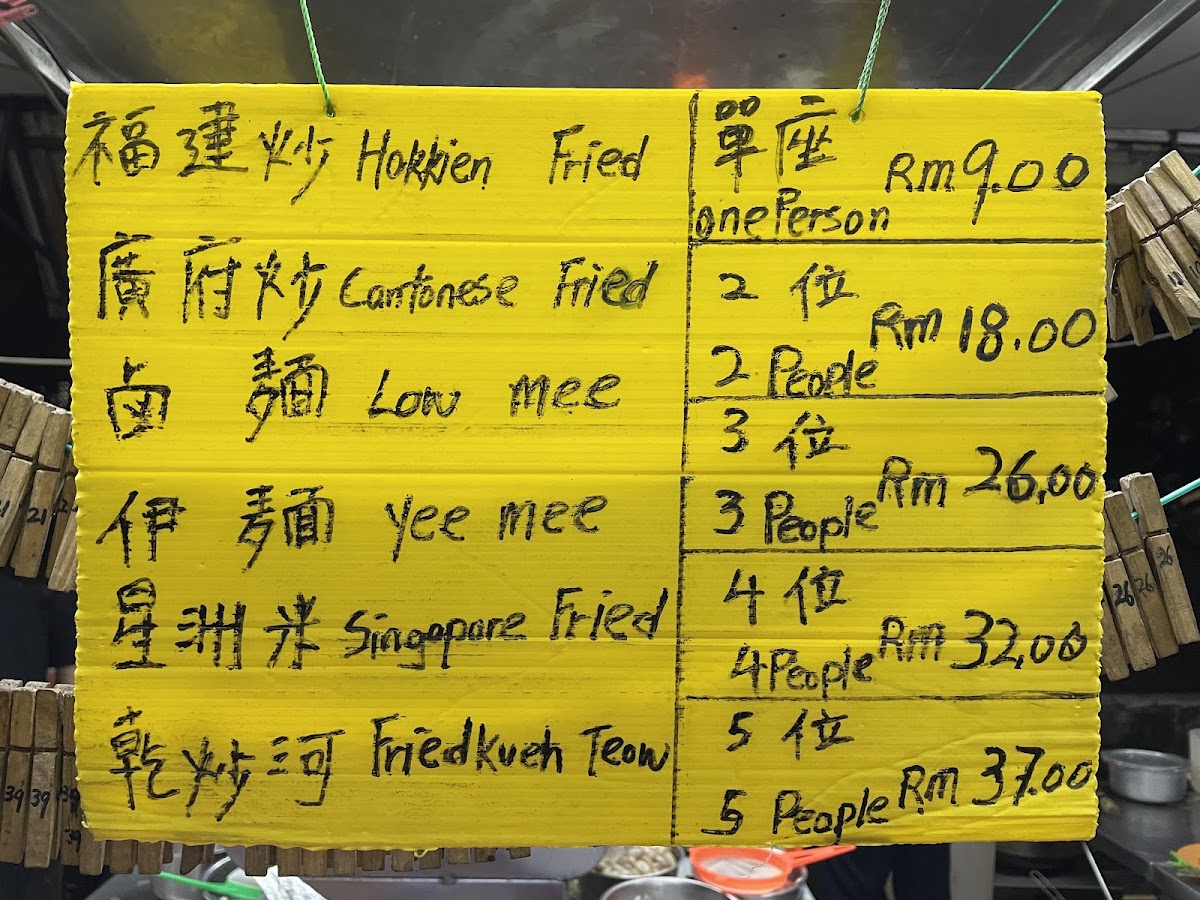 福建炒 Hokkien Fried
廣府炒 Cantonese Fried
卤 麵 Low mee
伊 麵 yee mee
星洲米 Singapore Fried
乾炒河 Fried Kueh Teow
單座 Rm 9.00
one Person
2 位 Rm 18.00
2 People
3 位 Rm 26.00
3 People
4 位 Rm 32.00
4 People
5 位 Rm 37.00
5 People
21
39 39
26 26 26